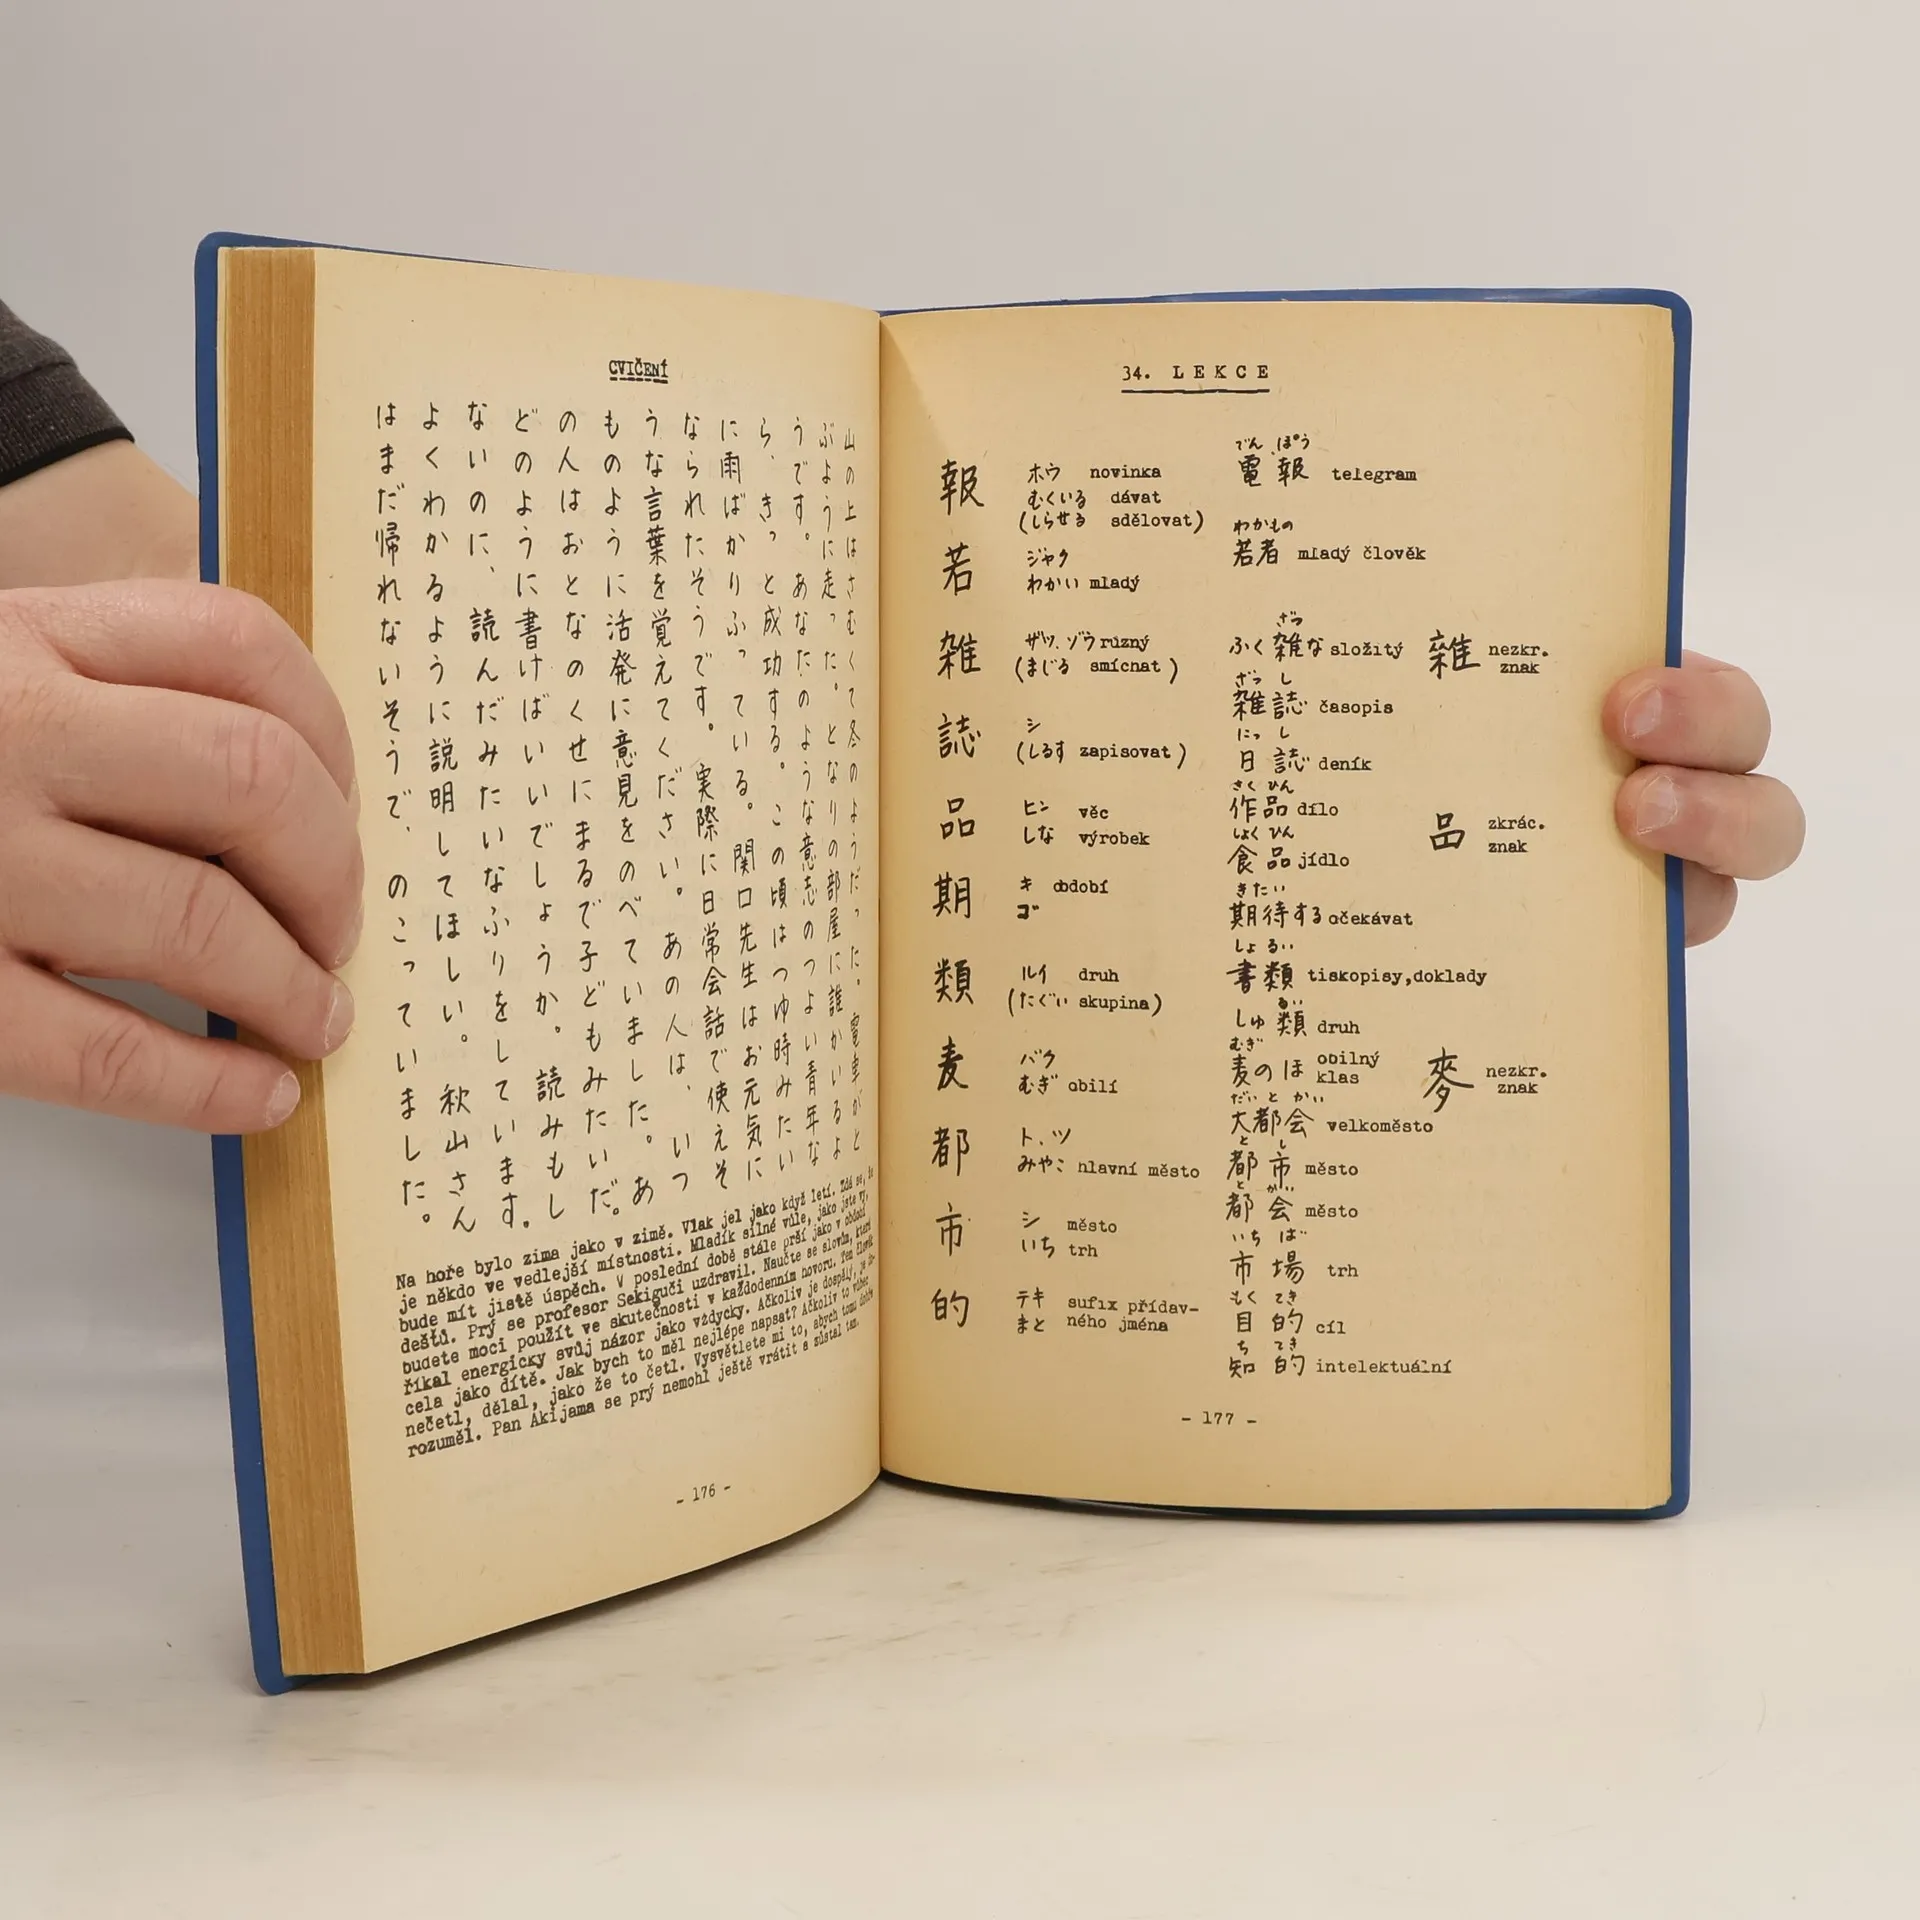 CVIČENÍ
山の上はさむくて冬のようだった。電車がと
ぶように走った。となりの部屋に誰かいるよ
うです。あなたのような意志のつよい青年な
ら、きっと成功する。この頃はつゆ時みたい
に雨ばかりふっている。関口先生はお元気に
なられたそうです。実際に日常会話で使えそ
うな言葉を覚えてください。あの人は、いつ
ものように活発に意見をのべていました。あ
の人はおとなのくせにまるで子どもみたいだ。
どのように書けばいいでしょうか。読みもし
ないのに、読んだみたいなふりをしています。
よくわかるように説明してほしい。秋山さん
はまだ帰れないそうで、のこっていました。
Na hoře bylo zima jako v zimě. Vlak jel jako když letí. Zdá se, že
je někdo ve vedlejší místnosti. Mladík silné vůle, jako jste vy,
bude mít jistě úspěch. V poslední době stále prší jako v období
dešťů. Prý se profesor Sekiguči uzdravil. Naučte se slovům, která
budete moci použít ve skutečnosti v každodenním hovoru. Ten člověk
říkal energicky svůj názor jako vždycky. Ačkoliv je dospělý, je do-
cela jako dítě. Jak bych to měl nejlépe napsat? Ačkoliv to vůbec
nečetl, dělal, jako že to četl. Vysvětlete mi to, abych tomu dobře
rozuměl. Pan Akijama se prý nemohl ještě vrátit a zůstal tam.
- 176 -
34. LEKCE
報 ホウ novinka
むくいる dávat
(しらせる sdělovat)
でん ぽう
電報 telegram
若 ジャク
わかい mladý
わかもの
若者 mladý člověk
雑 ザツ, ゾウ různý
(まじる smíchat)
ざつ
ふく雑な složitý
雜 nezkr.
znak
ざっ し
雑誌 časopis
誌 シ
(しるす zapisovat)
にっ し
日誌 deník
品 ヒン věc
しな výrobek
さく ひん
作品 dílo
しょく ひん
食品 jídlo
zkrác.
znak
期 キ období
ゴ
きたい
期待する očekávat
類 ルイ druh
(たぐい skupina)
しょるい
書類 tiskopisy, doklady
るい
しゅ類 druh
麦 バク
むぎ obilí
むぎ
麦のほ obilný
klas
麥 nezkr.
znak
都 ト, ツ
みやこ hlavní město
だい と かい
大都会 velkoměsto
と し
都市 město
と かい
都会 město
市 シ město
いち trh
いち ば
市場 trh
的 テキ sufix přídav-
まと ného jména
もく てき
目的 cíl
ち てき
知的 intelektuální
- 177 -